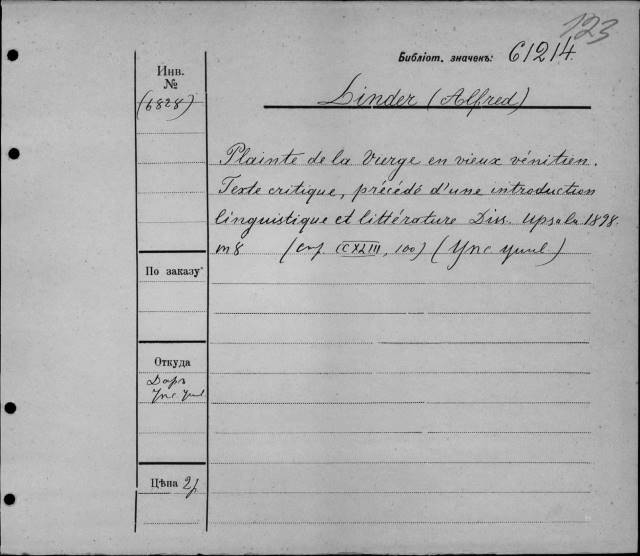 123
Библіот. значекъ: 61214.
Инв.
№
(6828)
Linder (Alfred)
Plainte de la Vierge en vieux vénitien.
Texte critique, précédé d'une introduction
linguistique et littérature Diss. Upsala 1898.
m8 (CXLIII, 100) (Упс. унив)
По заказу
Откуда
Даръ
Упс. унив
Цѣна 2р